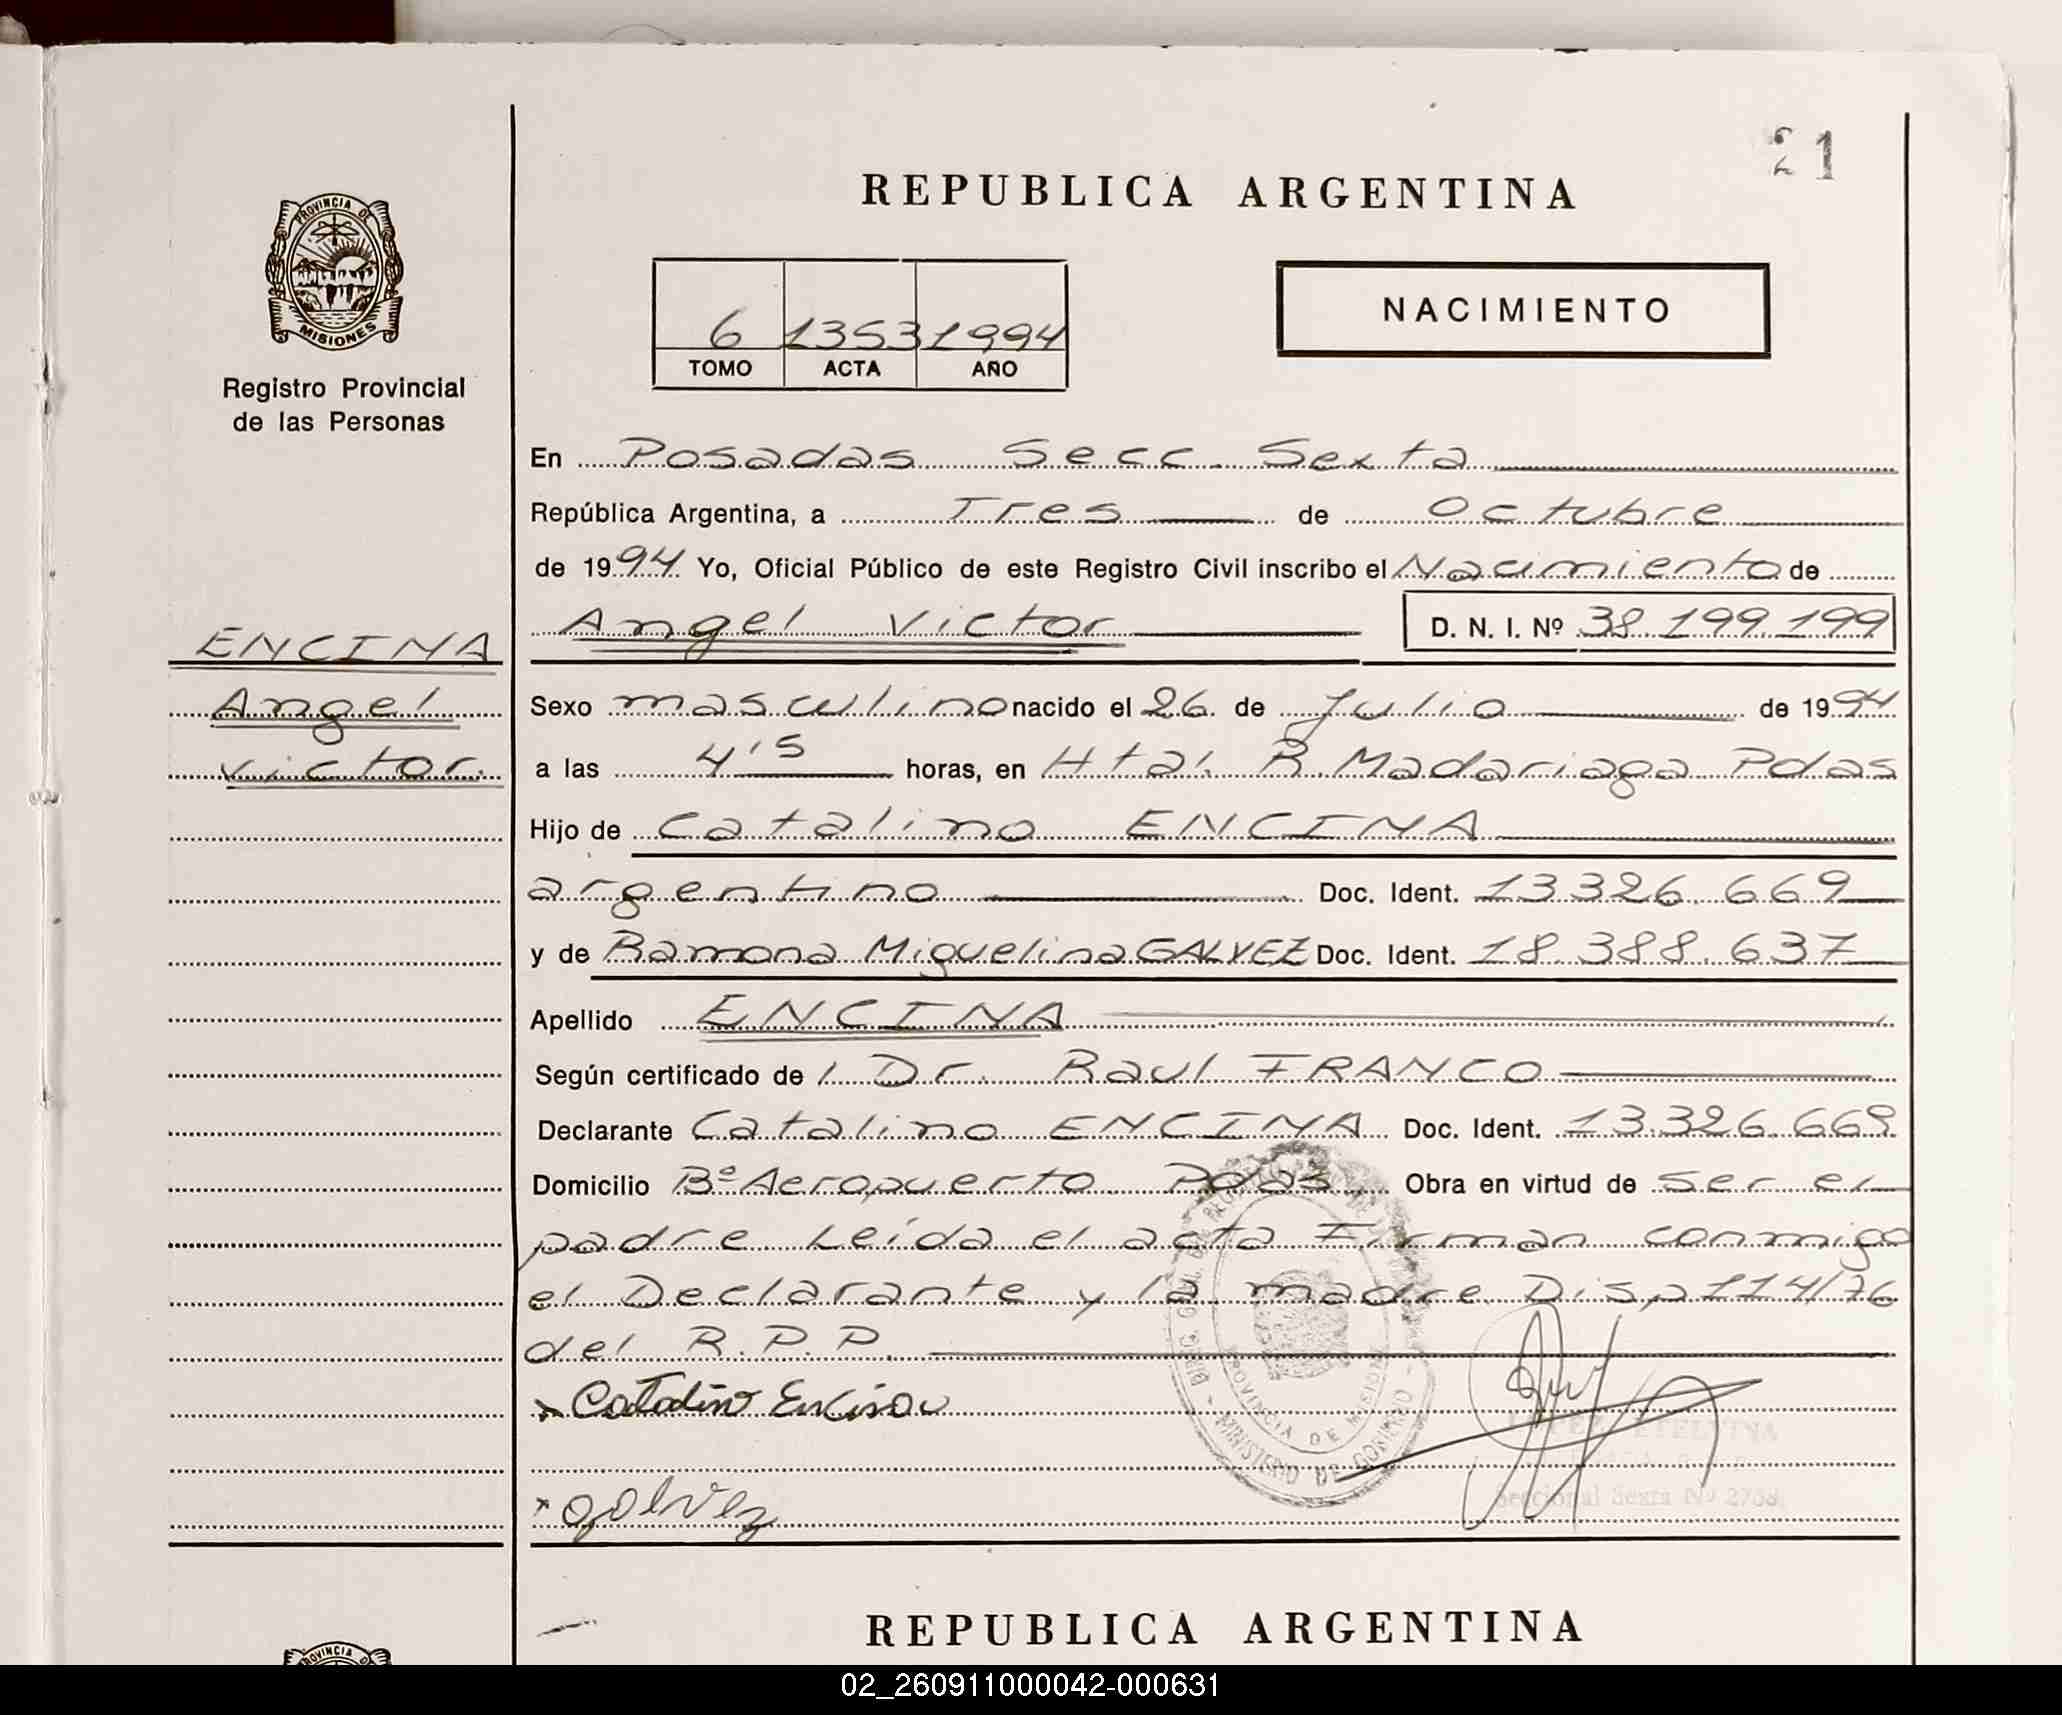 21
REPUBLICA ARGENTINA
PROVINCIA DE
MISIONES
Registro Provincial
de las Personas
6 1353 1994
TOMO ACTA AÑO
NACIMIENTO
En Posadas Secc. Sexta
República Argentina, a Tres de Octubre
de 1994 Yo, Oficial Público de este Registro Civil inscribo el Nacimiento de
Angel Victor D. N. I. Nº 38.199.199
ENCINA
Angel
Victor.
Sexo masculino nacido el 26 de Julio de 1994
a las 4'5 horas, en Htal. R. Madariaga Pdas
Hijo de Catalino ENCINA
argentino Doc. Ident. 13.326.669
y de Ramona Miguelina GALVEZ Doc. Ident. 18.388.637
Apellido ENCINA
Según certificado de l Dr. Raul FRANCO
Declarante Catalino ENCINA Doc. Ident. 13.326.669
Domicilio Bº Aeropuerto Pdas Obra en virtud de ser el
padre Leída el acta Firman conmigo
el Declarante y la madre Disp 114/76
del R.P.P.
PROVINCIA DE MISIONES
MINISTERIO DE GOBIERNO
Seccional Sexta Nº 2768
x Catalino Encina
x galvez
REPUBLICA ARGENTINA
PROVINCIA DE
02_260911000042-000631